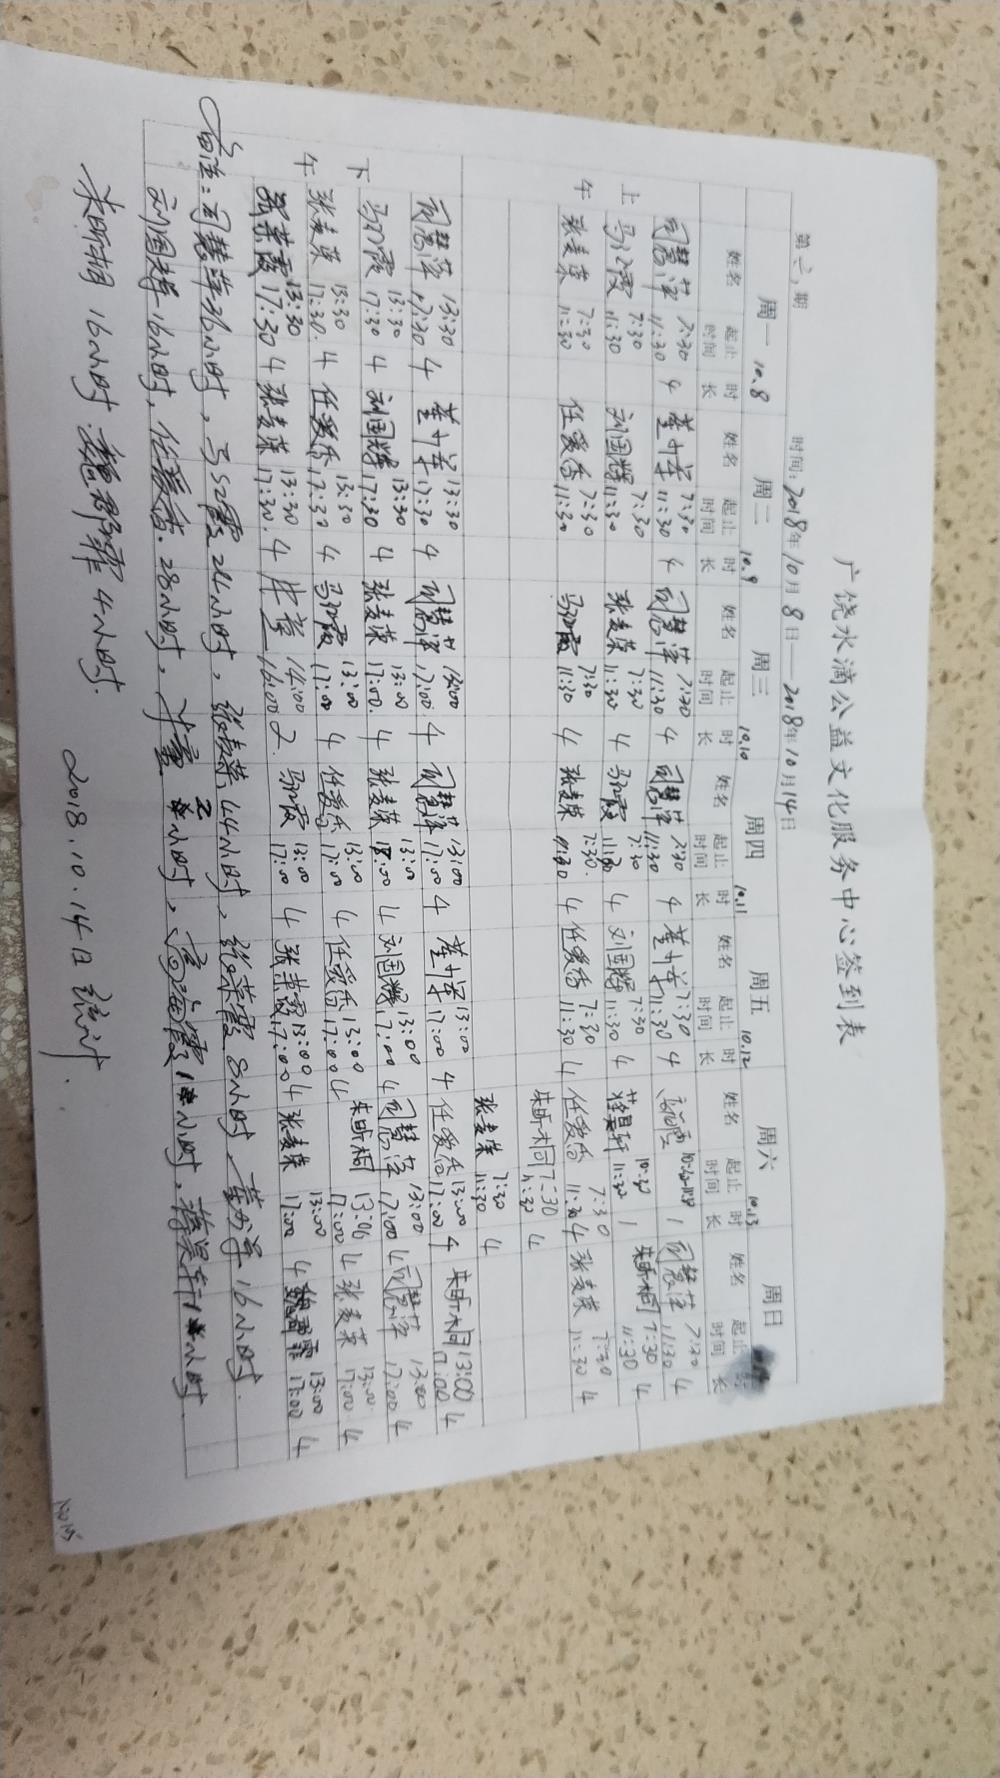 广饶水滴公益文化服务中心签到表
第二期 时间:2018年10月8日——2018年10月14日
周一 10.8 周二 10.9 周三 10.10 周四 10.11 周五 10.12 周六 10.13 周日
姓名 起止时间 时长 姓名 起止时间 时长 姓名 起止时间 时长 姓名 起止时间 时长 姓名 起止时间 时长 姓名 起止时间 时长 姓名 起止时间 时长
上午
司慧萍 7:30 11:30 4 董小军 7:30 11:30 4 司慧萍 7:30 11:30 4 司慧萍 7:30 11:30 4 董小军 7:30 11:30 4 1 司慧萍 7:30 11:30 4
马江霞 7:30 11:30 刘国辉 7:30 11:30 张麦荣 7:30 11:30 4 马江霞 7:30 11:30 4 刘国辉 7:30 11:30 4 蒋昊轩 10:30 11:30 1 朱昕桐 7:30 11:30 4
张麦荣 7:30 11:30 任爱香 7:30 11:30 马江霞 7:30 11:30 4 张麦荣 7:30 11:30 4 任爱香 7:30 11:30 4 任爱香 7:30 11:30 4 张麦荣 7:30 11:30 4
朱昕桐 7:30 11:30 4
张麦荣 7:30 11:30 4
下午
司慧萍 13:30 17:30 4 董小军 13:30 17:30 4 司慧萍 13:00 17:00 4 司慧萍 13:00 17:00 4 董小军 13:00 17:00 4 任爱香 13:00 17:00 4 朱昕桐 13:00 17:00 4
马江霞 13:30 17:30 4 刘国辉 13:30 17:30 4 张麦荣 13:00 17:00 4 张麦荣 13:00 18:00 4 刘国辉 13:00 17:00 4 司慧萍 13:00 17:00 4 司慧萍 13:00 17:00 4
张麦荣 13:30 17:30 4 任爱香 13:30 17:30 4 马江霞 13:00 17:00 4 任爱香 13:00 17:00 4 任爱香 13:00 17:00 4 朱昕桐 13:06 17:00 4 张麦荣 13:00 17:00 4
张荣霞 13:30 17:30 4 张麦荣 13:30 17:30 4 14:00 16:00 2 马江霞 13:00 17:00 4 张荣霞 13:00 17:00 4 张麦荣 13:00 17:00 4 13:00 17:00 4
备注:司慧萍36小时,马江霞24小时,张麦荣44小时,张荣霞8小时,董小军16小时.
刘国辉16小时,任爱香28小时,2小时,1小时,蒋昊轩1小时
朱昕桐16小时 4小时.
2018.10.14日统计.